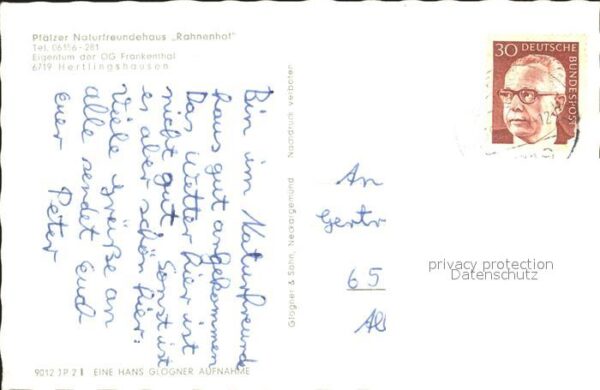 Pfälzer Naturfreundehaus „Rahnenhof"
Tel. 06356-281
Eigentum der OG Frankenthal
6719 Hertlingshausen
Bin im Naturfreunde
haus gut angekommen
Das Wetter hier ist
nicht gut. Sonst ist
es aber schön hier.
Viele Grüße an
alle sendet Euch
euer Peter
Glogner & Sohn, Neckargemünd Nachdruck verboten
30 DEUTSCHE BUNDESPOST
An
Gertr
65
Als
privacy protection
Datenschutz
9012 JP 21 EINE HANS GLOGNER AUFNAHME